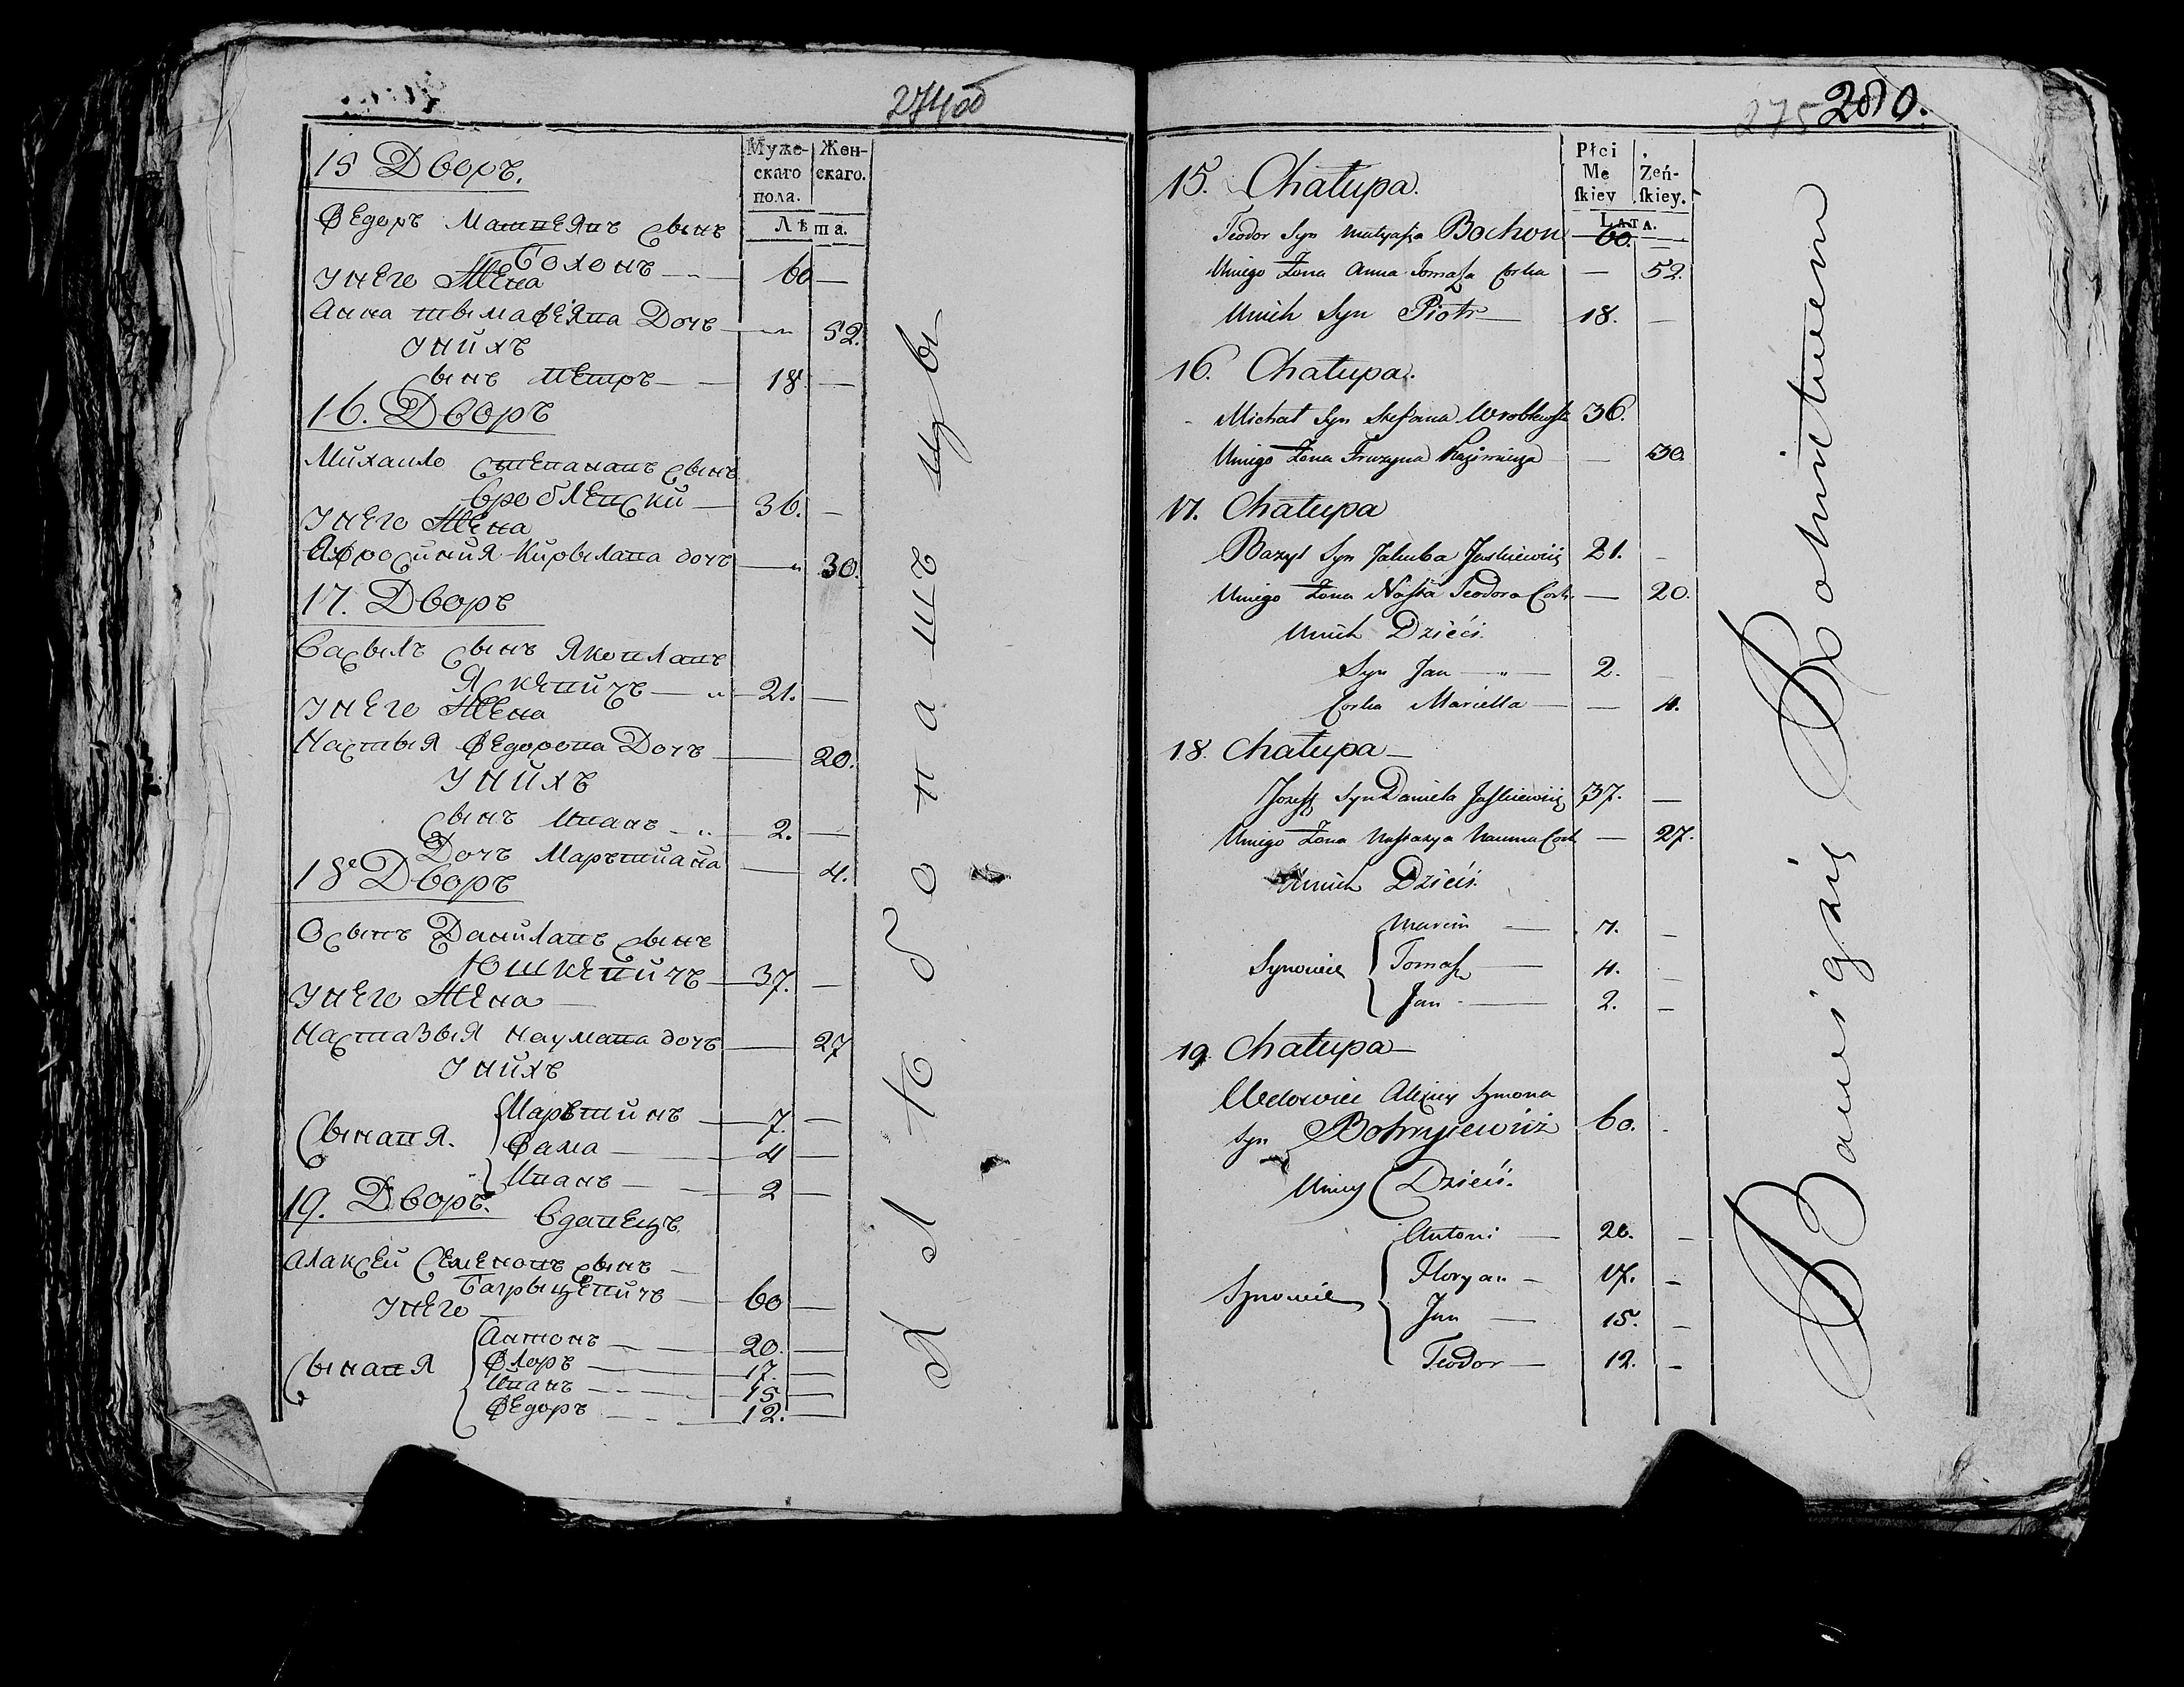 274об
15 Дворъ.
Муже-
скаго
пола.
Жен-
скаго.
Лѣта.
Федоръ Матвеявъ сынъ
Бохонъ 60 —
унего жена
Анна тымафеява Дочъ — 52.
унихъ
Сынъ Петръ — 18 —
16. Дворъ
Михаило Степанавъ сынъ
Вроблевски — 36. —
унего жена
Афросиния Кирвылава дочъ — 30.
17. Дворъ
Васыль сынъ Яковлавъ
Яскевичъ — 21. —
унего жена
Настыя Федорова Дочъ — 20.
унихъ
Сынъ Иванъ — 2. —
Дочъ Марътиана — 4.
18 Дворъ
Осыпъ Данилавъ сынъ
Юшкевичъ — 37. —
унего жена —
Настазыя Наумава дочъ — 27
унихъ
Сынавя. Марътинъ — 7. —
Фама — 4 —
Иванъ — 2 —
19. Дворъ.
Вдавецъ
Алаксей Семеновъ сынъ —
Багрыцевичъ — 60 —
унего
Сынавя Антонъ — 20. —
Флоръ — 17. —
Иванъ — 15 —
Федоръ — 12. —
275 280.
15. Chałupa.
Płci
Mę
skiey
Żeń-
skiey.
Lata.
Teodor Syn Matyasza Bochon 60. —
Uniego Żona Anna Tomasza Corka — 52.
Unich Syn Piotr — 18. —
16. Chałupa.
Michał Syn Stefana Wroblewski 36.
Uniego Żona Fruzyna Kazimierza — 30.
17. Chałupa
Bazyl Syn Jakuba Juskiewicz 21. —
Uniego Żona Nasta Teodora Cork. — 20.
Unich Dzieci.
Syn Jan — 2. —
Corka Mariella — — 4.
18. Chałupa —
Jozeff Syn Daniela Juskiewicz 37. —
Uniego Żona Nastazya Nauma Cork — 27.
Unich Dzieci.
Synowie Marcin — 7. —
Tomasz — 4. —
Jan — 2. —
19. Chałupa —
Wdowiec Alexiey Szymona
Syn 60. -
Dzieci.
Synowie Antoni — 20. —
Floryan — 17. —
Jan — 15. —
Teodor — 12. —